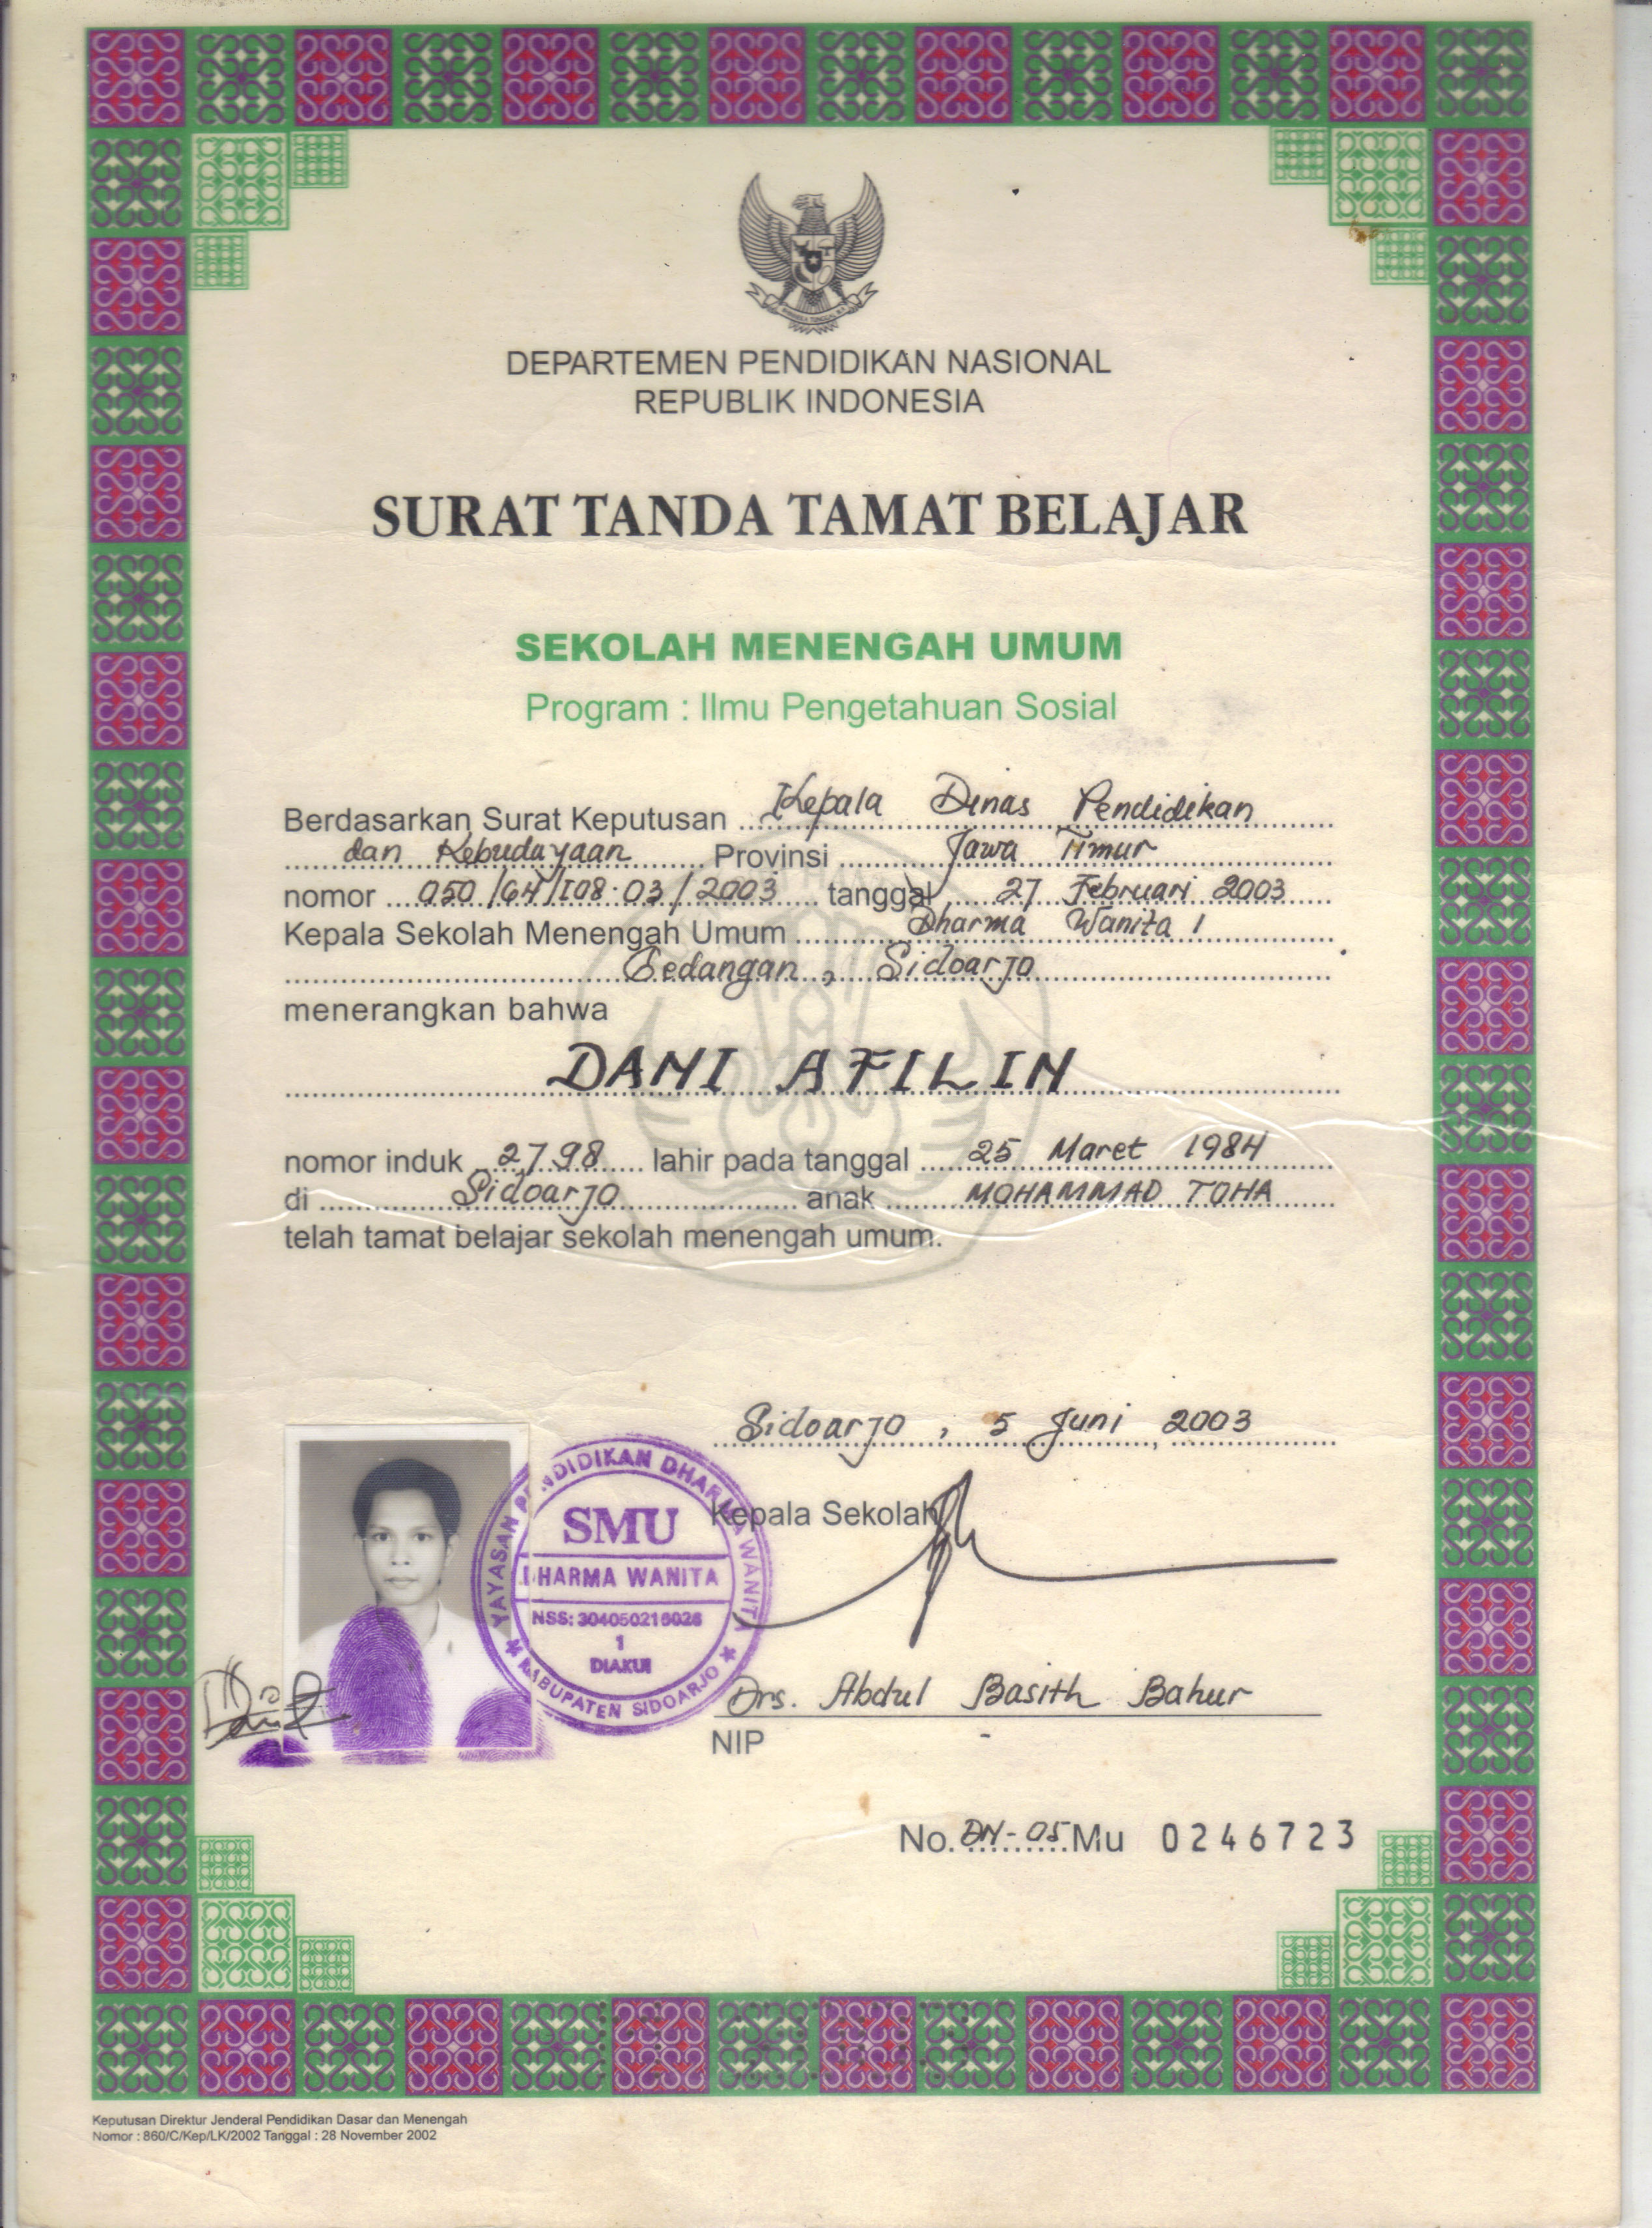 DEPARTEMEN PENDIDIKAN NASIONAL
REPUBLIK INDONESIA
SURAT TANDA TAMAT BELAJAR
SEKOLAH MENENGAH UMUM
Program : Ilmu Pengetahuan Sosial
Berdasarkan Surat Keputusan Kepala Dinas Pendidikan
dan Kebudayaan Provinsi Jawa Timur
nomor 050/64/108.03/2003 tanggal 27 Februari 2003
Kepala Sekolah Menengah Umum Dharma Wanita 1
Gedangan, Sidoarjo
menerangkan bahwa
DANI AFILIN
nomor induk 2798 lahir pada tanggal 25 Maret 1984
di Sidoarjo anak MOHAMMAD TOHA
telah tamat belajar sekolah menengah umum.
Sidoarjo, 5 Juni, 2003
Kepala Sekolah
YAYASAN PENDIDIKAN DHARMA WANITA
SMU
DHARMA WANITA
NSS: 304050216026
1
DIAKUI
KABUPATEN SIDOARJO
Drs. Abdul Basith Bahur
NIP -
No. DN-05 Mu 0246723
Keputusan Direktur Jenderal Pendidikan Dasar dan Menengah
Nomor : 860/C/Kep/LK/2002 Tanggal : 28 November 2002